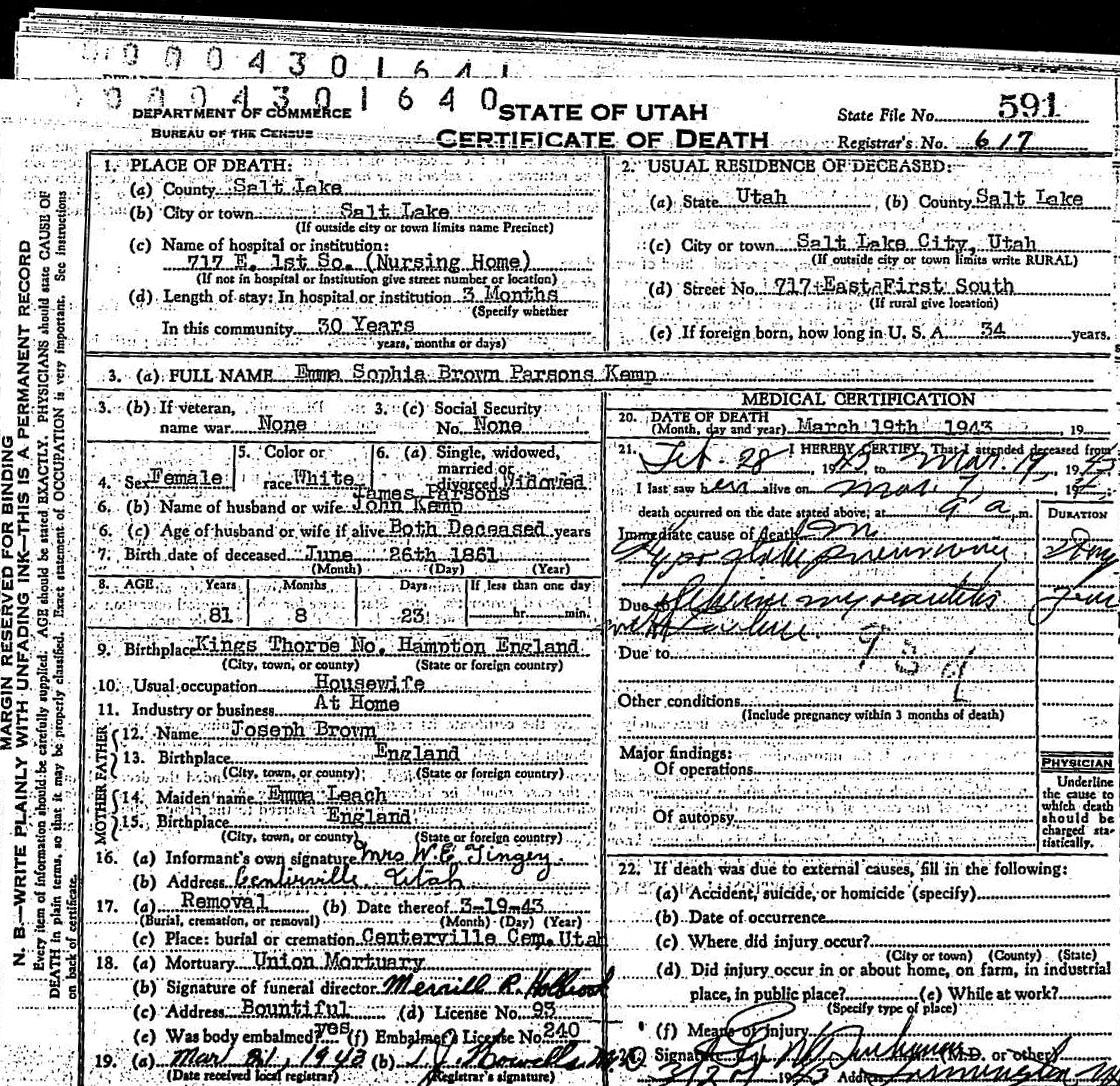 0004301641
0004301640
DEPARTMENT OF COMMERCE
BUREAU OF THE CENSUS
STATE OF UTAH
CERTIFICATE OF DEATH
State File No. 591
Registrar's No. 617
MARGIN RESERVED FOR BINDING
N. B.—WRITE PLAINLY WITH UNFADING INK—THIS IS A PERMANENT RECORD
Every item of information should be carefully supplied. AGE should be stated EXACTLY. PHYSICIANS should state CAUSE OF
DEATH in plain terms, so that it may be properly classified. Exact statement of OCCUPATION is very important. See instructions
on back of certificate.
1. PLACE OF DEATH:
(a) County Salt Lake
(b) City or town Salt Lake
(If outside city or town limits name Precinct)
(c) Name of hospital or institution:
717 E. 1st So. (Nursing Home)
(If not in hospital or institution give street number or location)
(d) Length of stay: In hospital or institution 3 Months
(Specify whether
In this community 30 Years
years, months or days)
2. USUAL RESIDENCE OF DECEASED:
(a) State Utah (b) County Salt Lake
(c) City or town Salt Lake City, Utah
(If outside city or town limits write RURAL)
(d) Street No. 717 East First South
(If rural give location)
(e) If foreign born, how long in U. S. A. 34 years.
3. (a) FULL NAME Emma Sophia Brown Parsons Kemp
3. (b) If veteran, name war None
3. (c) Social Security No. None
4. Sex Female
5. Color or race White
6. (a) Single, widowed, married or divorced Widowed
James Parsons
6. (b) Name of husband or wife John Kemp
6. (c) Age of husband or wife if alive Both Deceased years
7. Birth date of deceased June 26th 1861
(Month) (Day) (Year)
8. AGE Years Months Days If less than one day
81 8 23 hr. min.
9. Birthplace Kings Thorpe No. Hampton England
(City, town, or county) (State or foreign country)
10. Usual occupation Housewife
11. Industry or business At Home
FATHER
12. Name Joseph Brown
13. Birthplace England
(City, town, or county) (State or foreign country)
MOTHER
14. Maiden name Emma Leach
15. Birthplace England
(City, town, or county) (State or foreign country)
16. (a) Informant's own signature Mrs W. E. Tingey
(b) Address Centerville Utah
17. (a) Removal (b) Date thereof 3-19-43
(Burial, cremation, or removal) (Month) (Day) (Year)
(c) Place: burial or cremation Centerville Cem. Utah
18. (a) Mortuary Union Mortuary
(b) Signature of funeral director Merrill R. Holbrook
(c) Address Bountiful (d) License No. 93
(e) Was body embalmed? yes (f) Embalmer's License No. 240
19. (a) Mar 21, 1943 (b) T. J. Howells M.D.
(Date received local registrar) (Registrar's signature)
MEDICAL CERTIFICATION
20. DATE OF DEATH
(Month, day and year) March 19th 1943, 19
21. I HEREBY CERTIFY, That I attended deceased from
Feb. 28 1943 to Mar. 19, 19
I last saw her alive on Mar. 19
death occurred on the date stated above, at 9 a m.
DURATION
Immediate cause of death
Hypostatic pneumonia
Due to myocarditis
Due to
Other conditions
(Include pregnancy within 3 months of death)
Major findings:
Of operations
Of autopsy
PHYSICIAN
Underline
the cause to
which death
should be
charged sta-
tistically.
22. If death was due to external causes, fill in the following:
(a) Accident, suicide, or homicide (specify)
(b) Date of occurrence
(c) Where did injury occur?
(City or town) (County) (State)
(d) Did injury occur in or about home, on farm, in industrial
place, in public place? (e) While at work?
(Specify type of place)
(f) Means of injury
Signature (M.D. or other)
Address Farmington